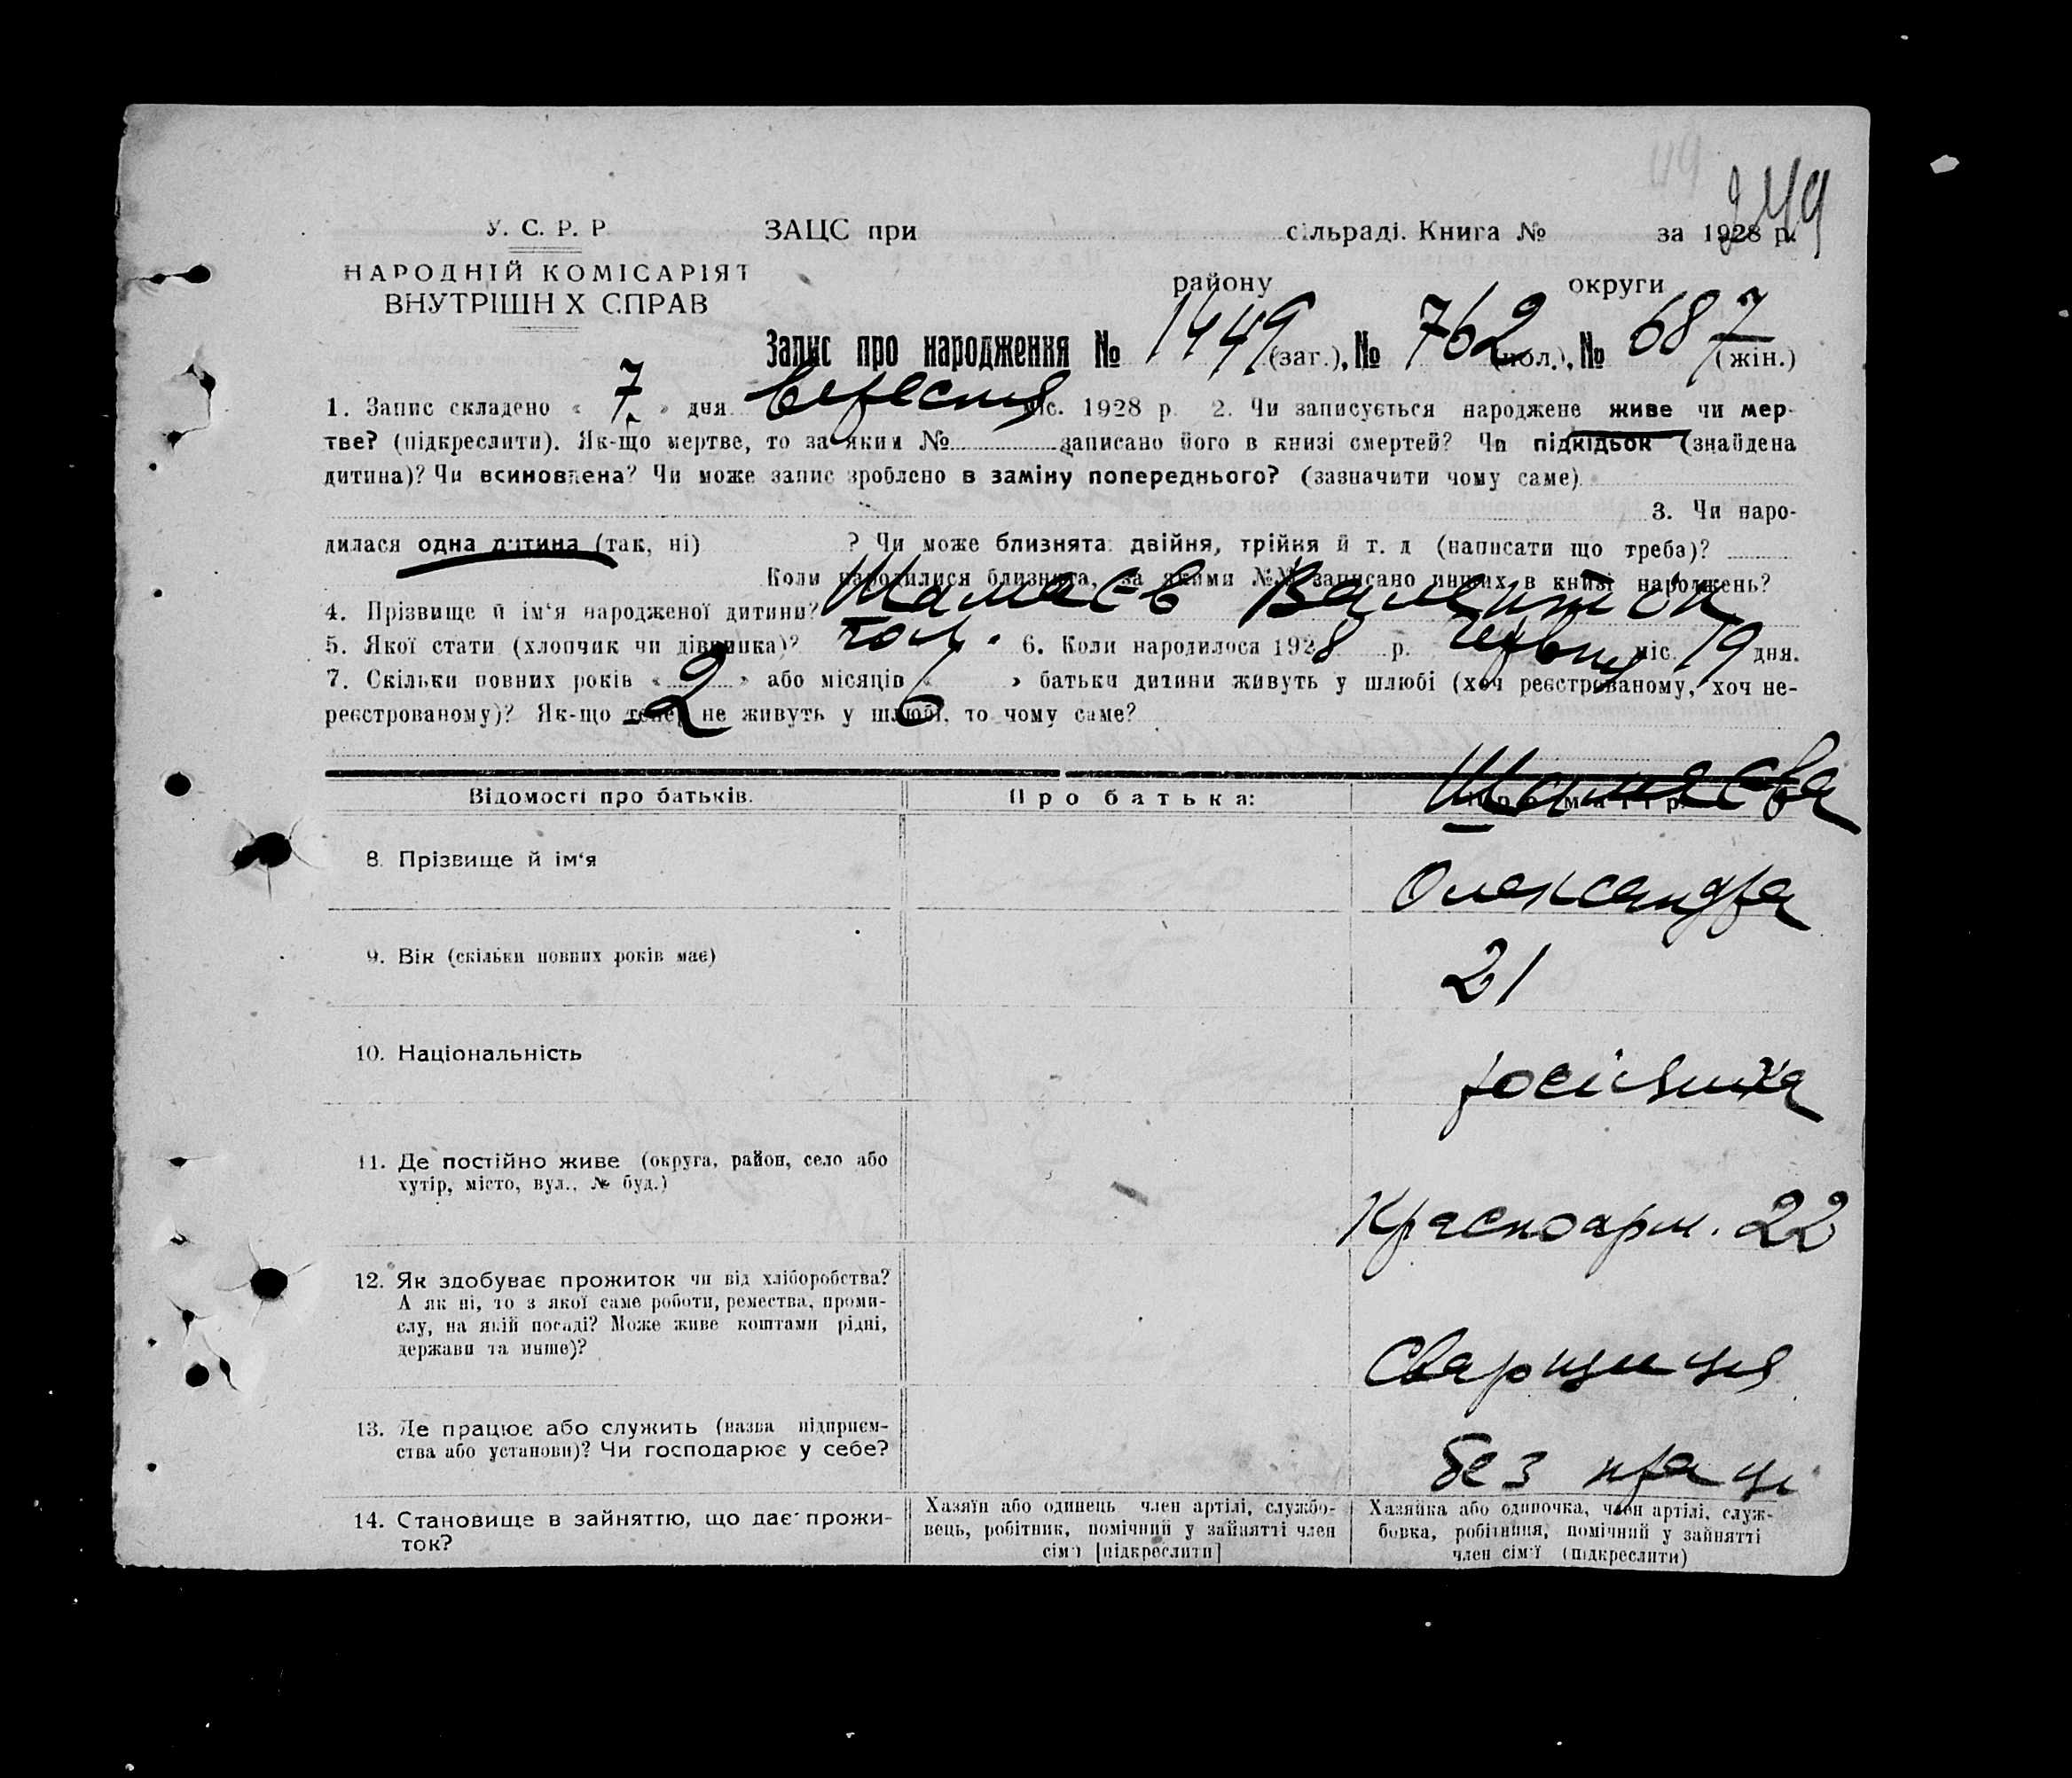 249
У. С. Р. Р.
ЗАЦС при сільраді. Книга № за 1928 р.
НАРОДНІЙ КОМІСАРІЯТ
ВНУТРІШНІХ СПРАВ
району округи
Запис про народження № 1449 (заг.), № 762 (чол.), № 687 (жін.)
1. Запис складено « 7 » дня вересня міс. 1928 р. 2. Чи записується народжене живе чи мер-
тве? (підкреслити). Як-що мертве, то за яким № записано його в книзі смертей? Чи підкідьок (знайдена
дитина)? Чи всиновлена? Чи може запис зроблено в заміну попереднього? (зазначити чому саме)
3. Чи наро-
дилася одна дитина (так, ні) ? Чи може близнята: двійня, трійня й т. д (написати що треба)?
Коли народилися близнята, за якими №№ записано инших в книзі народжень?
4. Прізвище й ім'я народженої дитини? Шамаєв Валентин
5. Якої стати (хлопчик чи дівчинка)? чол. 6. Коли народилося 1928 р. червня міс. 19 дня.
7. Скільки повних років « 2 » або місяців « 6 » батьки дитини живуть у шлюбі (хоч реєстрованому, хоч не-
реєстрованому)? Як-що тепер не живуть у шлюбі, то чому саме?
Відомості про батьків. Про батька: Про матір:
8. Прізвище й ім'я Шамаєва
Олександра
9. Вік (скільки повних років має) 21
10. Національність росіянка
11. Де постійно живе (округа, район, село або
хутір, місто, вул., № буд.)
Красноарм. 22
12. Як здобуває прожиток чи від хліборобства?
А як ні, то з якої саме роботи, ремества, проми-
слу, на якій посаді? Може живе коштами рідні,
держави та инше)?
Сварщиця
13. Де працює або служить (назва підприєм-
ства або установи)? Чи господарює у себе?
без праці
14. Становище в зайняттю, що дає прожи-
ток?
Хазяїн або одинець член артілі, службо-
вець, робітник, помічний у зайнятті член
сім'ї [підкреслити]
Хазяйка або одиночка, член артілі, служ-
бовка, робітниця, помічний у зайнятті
член сім'ї (підкреслити)